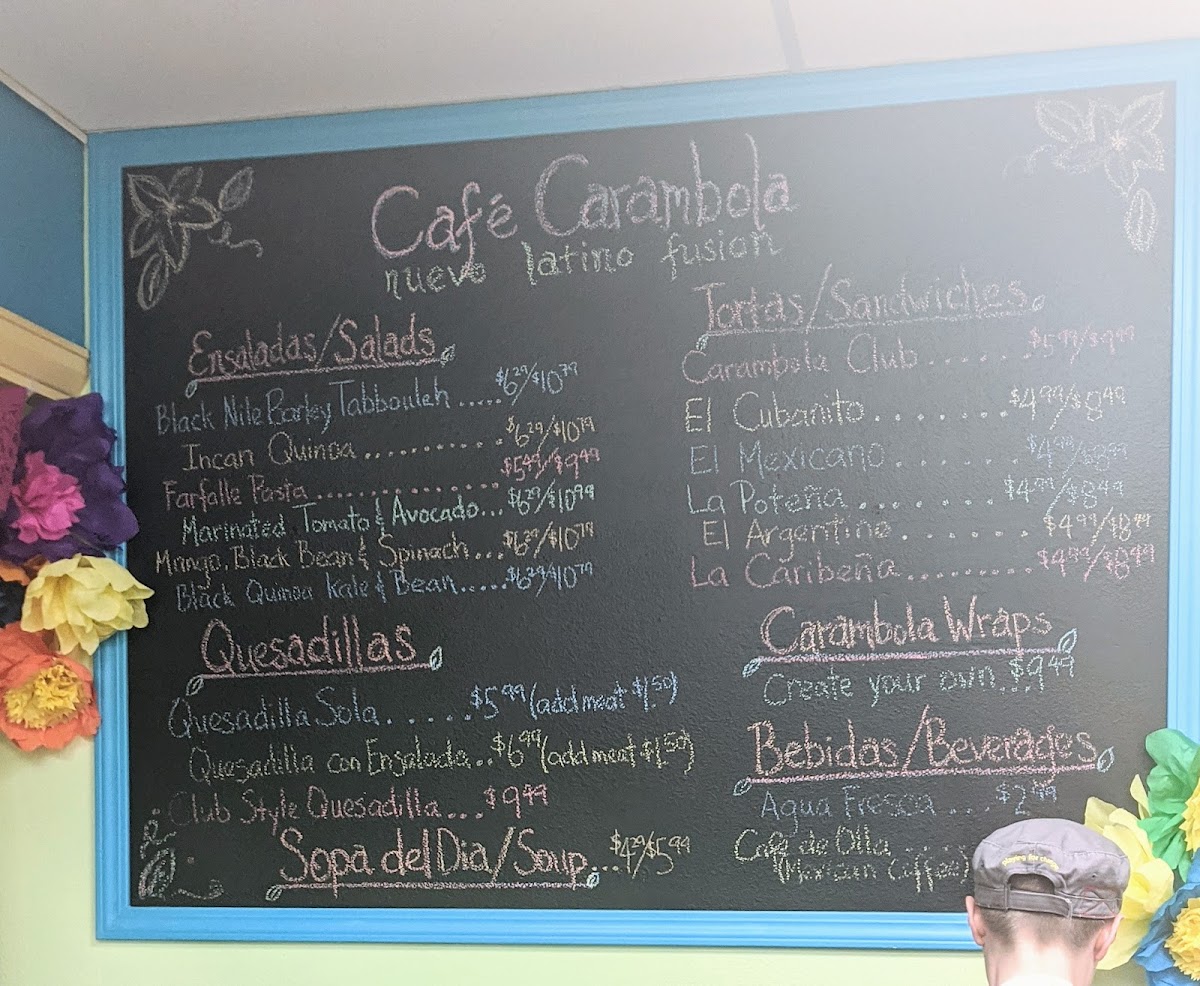 Café Carambola
nuevo latino fusion
Ensaladas/Salads
Black Nile Barley Tabbouleh.....$6.29/$10.79
Incan Quinoa............$6.29/$10.79
Farfalle Pasta................$5.49/$9.49
Marinated Tomato & Avocado...$6.29/$10.99
Mango, Black Bean & Spinach...$6.29/$10.79
Black Quinoa Kale & Bean.....$6.29/$10.79
Quesadillas
Quesadilla Sola......$5.99 (add meat $1.50)
Quesadilla con Ensalada..$6.99 (add meat $1.50)
Club Style Quesadilla...$9.49
Sopa del Dia/Soup...$4.29/$5.99
Tortas/Sandwiches
Carambola Club.......$5.99/$9.49
El Cubanito........$4.99/$8.49
El Mexicano......$4.99/$8.99
La Poteña.......$4.99/$8.49
El Argentino.......$4.99/$8.49
La Caribeña.........$4.99/$8.49
Carambola Wraps
Create your own...$9.49
Bebidas/Beverages
Agua Fresca....$2.49
Cafe de Olla
(Mexican Coffee)
playing for change